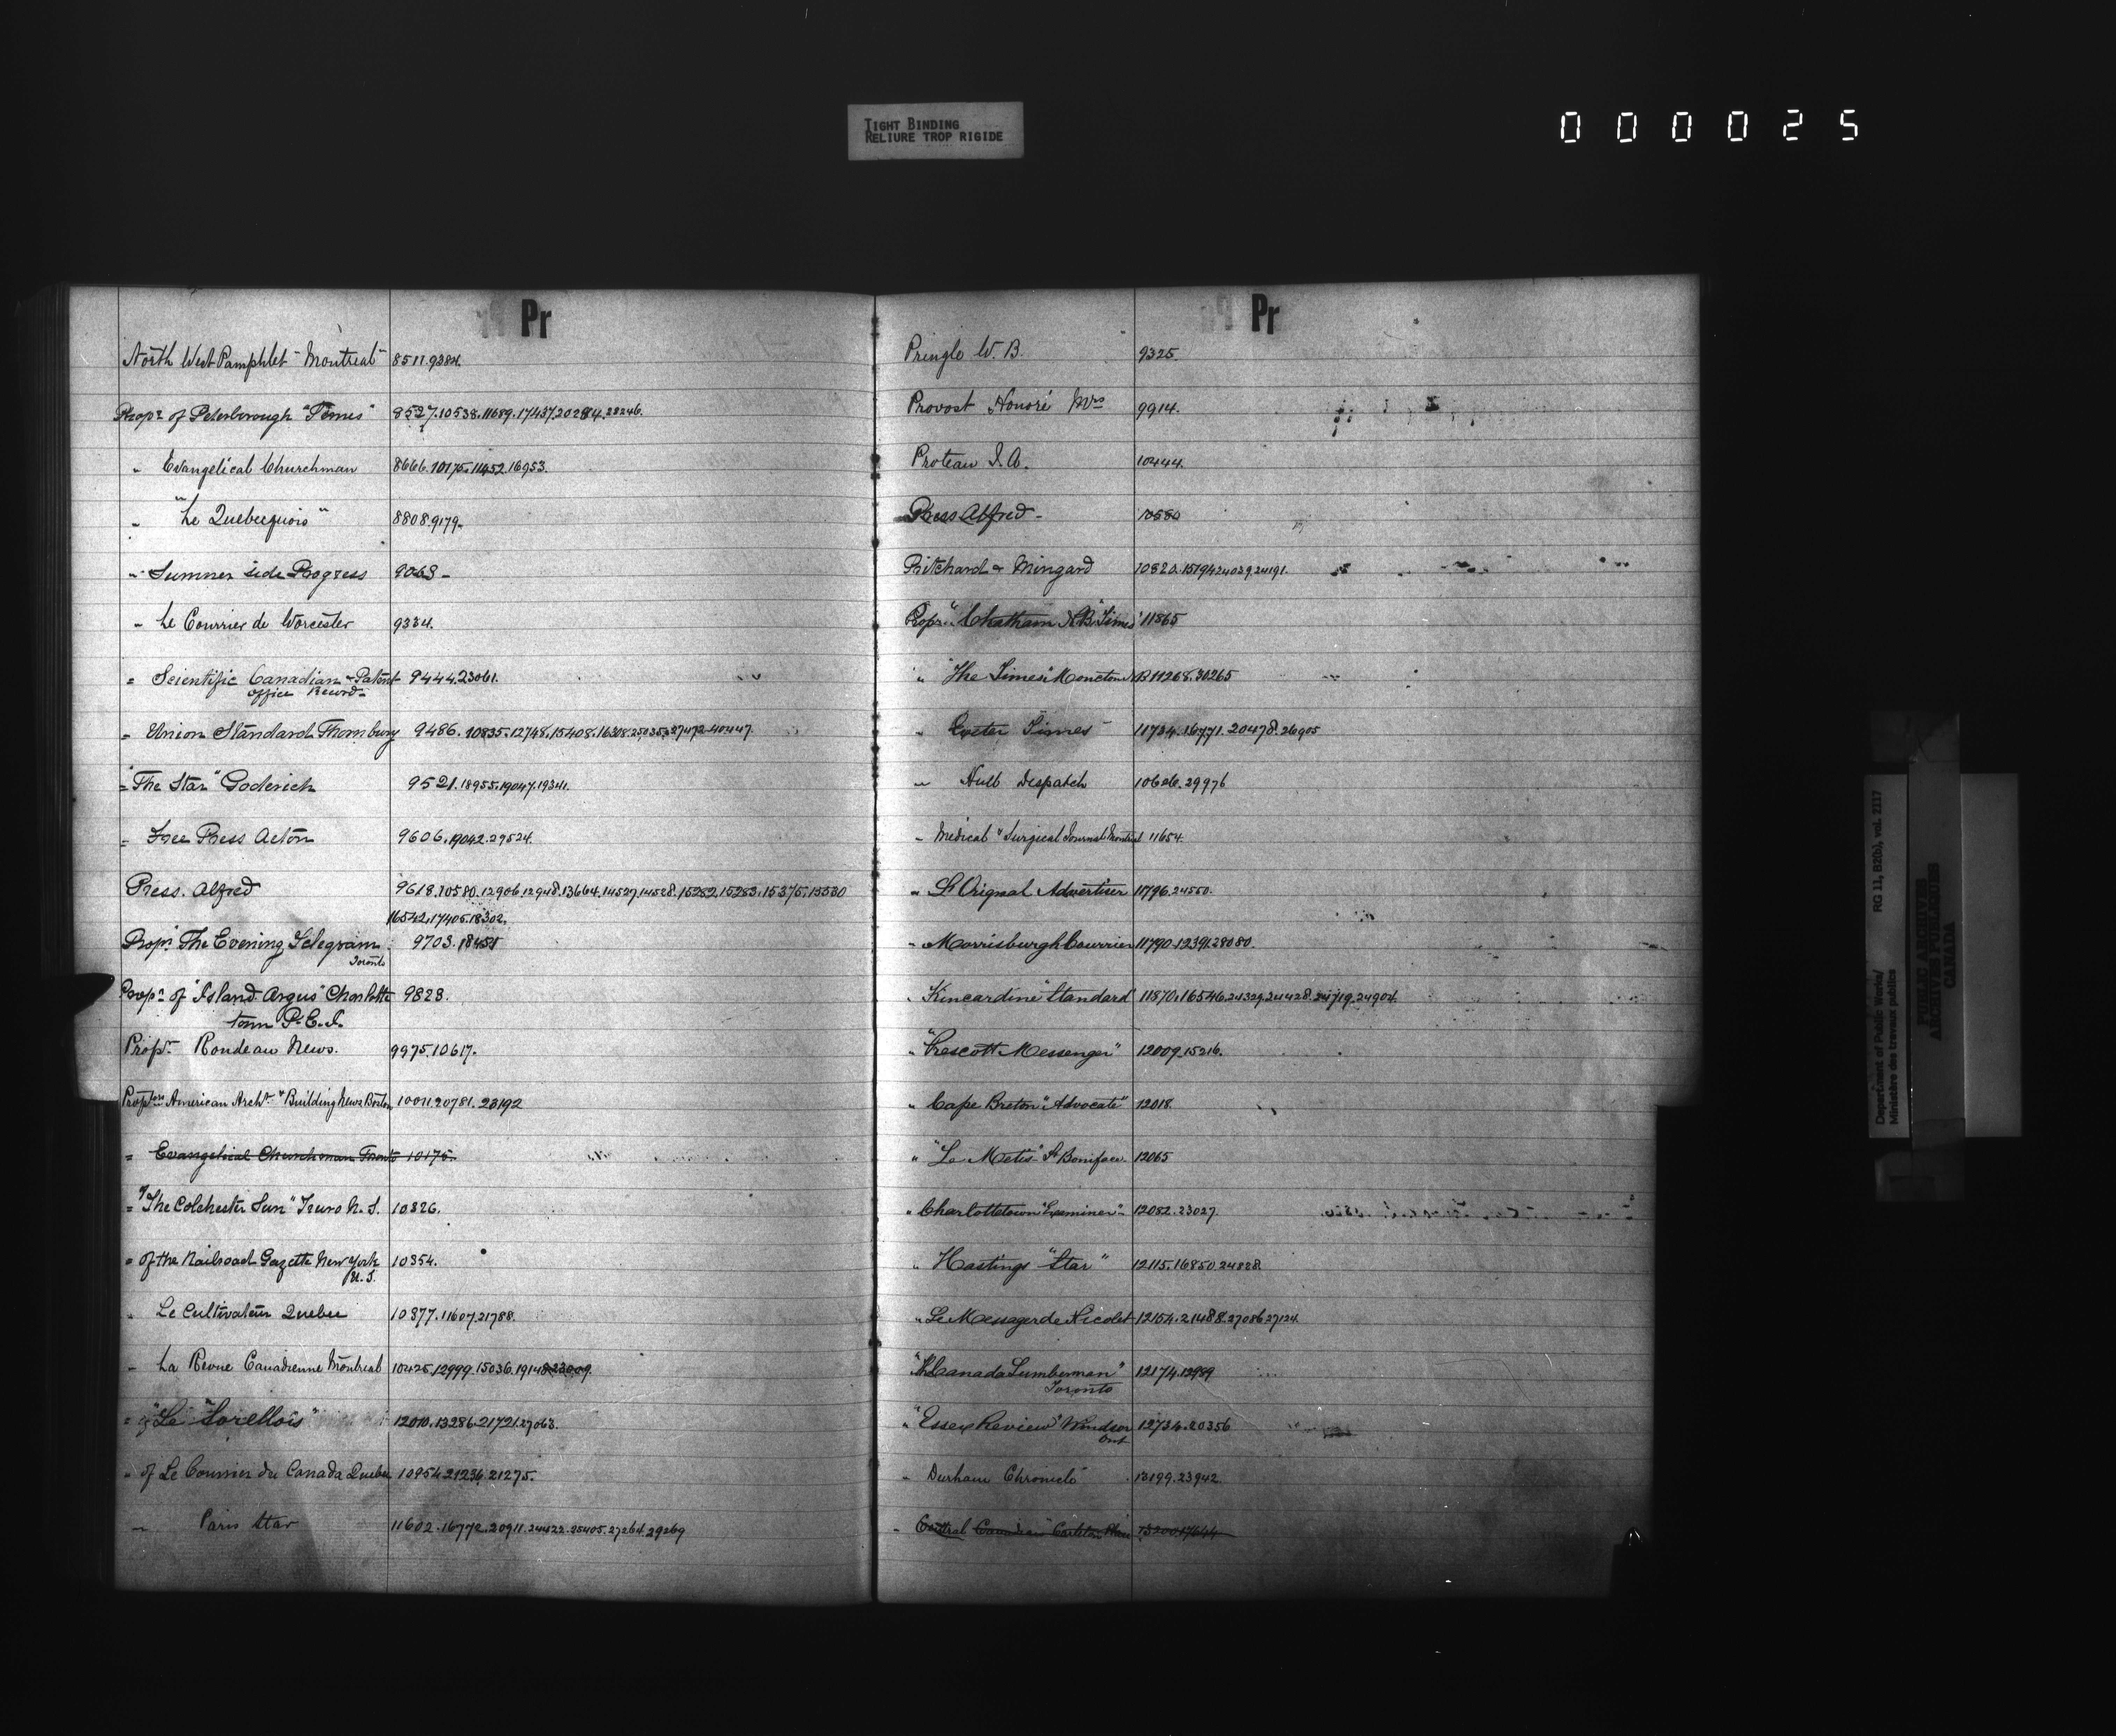 TIGHT BINDING
RELIURE TROP RIGIDE
000025
Pr
North West Pamphlet - Montreal 8511.9384.
Propr of Peterborough "Times" 9527.10538.11689.17437.20284.28246.
" Evangelical Churchman 8666.10175.11452.16953.
" "Le Quebecquois" 8808.9179.
" Summer side Progress 9063 -
" Le Courrier de Worcester 9334.
" Scientific Canadian & Patent 9444.23061.
office Record
" Union Standard Thornbury 9486.10835.12748.15408.16308.25035.27472.40447.
" "The Star" Goderich 9521.18955.19047.19341.
" Free Press Acton 9606.19042.29524.
Press. Alfred 9618.10580.12906.12948.13664.14527.14528.15282.15283.15375.15530
16542.17405.18302.
Propr "The Evening Telegram 9703.18451
Toronto
Propr of "Island Argus" Charlotte 9828.
town P.E.I.
Propr Rondeau News. 9975.10617.
Proptors American Archt & Building News Boston 10011.20781.28192
" Evangelical Churchman Toronto 10175.
" "The Colchester Sun" Truro N.S. 10326.
" of the Railroad Gazette New York 10354.
U.S.
" Le Cultivateur Quebec 10377.11607.21788.
" La Revue Canadienne Montreal 10425.12999.15036.19148.23009.
" of "Le Sorellois" 12010.13286.21721.27063.
" of Le Courrier du Canada Quebec 10954.21236.21275.
" Paris Star 11602.16772.20911.24422.25405.27264.29269
Pr
Pringle W. B. 9325
Provost Honoré Mrs 9914.
Proteau I. A. 10444.
Press Alfred - 10580
Pritchard & Mingard 10820.15194.24029.24191.
Propr "Chatham N.B. "Times" 11865
" "The Times" Moncton N.B. 11268.30265
" Exeter Times 11734.16771.20478.26905
" Hull Despatch 10626.29976
" Medical & Surgical Journal Montreal 11654.
" L'Orignal Advertiser 11796.24550.
" Morrisburgh Courrier 11790.12391.28080.
" Kincardine "Standard 11870.16546.24329.24428.24719.24904.
" "Prescott Messenger" 12009.15216.
" Cape Breton "Advocate" 12018.
" "Le Metis" St Boniface. 12065
" Charlottetown "Examiner" 12082.23027.
" Hastings "Star" 12115.16850.24828.
" Le Messager de Nicolet 12154.21488.27086.27124.
" Canada Lumberman" 12174.12989
Toronto
" "Essex Review" Windsor 12734.20356
Ont
" Durham Chronicle 13199.23942
" Central Canadian" Carleton Place 13200.17644
Department of Public Works/
Ministère des travaux publics
RG 11, B2(b), vol. 2117
PUBLIC ARCHIVES
ARCHIVES PUBLIQUES
CANADA